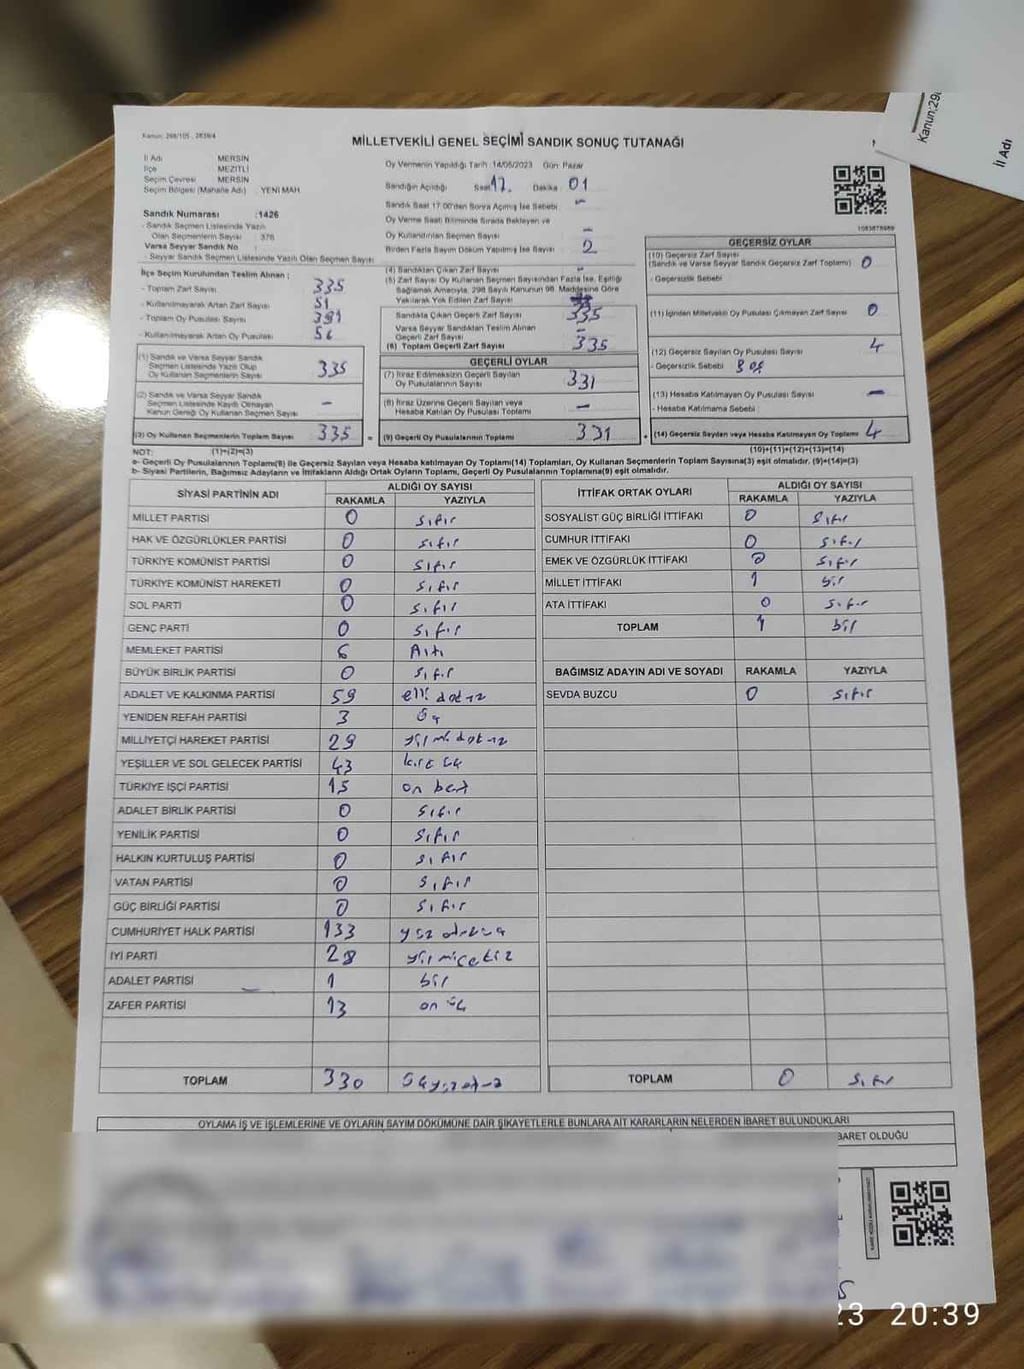 Kanun: 298/105 , 2839/4
MİLLETVEKİLİ GENEL SEÇİMİ SANDIK SONUÇ TUTANAĞI
İl Adı MERSİN
İlçe MEZİTLİ
Seçim Çevresi MERSİN
Seçim Bölgesi (Mahalle Adı) YENİ MAH
Sandık Numarası :1426
- Sandık Seçmen Listesinde Yazılı
Olan Seçmenlerin Sayısı : 376
Varsa Seyyar Sandık No :
- Seyyar Sandık Seçmen Listesinde Yazılı Olan Seçmen Sayısı
Oy Vermenin Yapıldığı Tarih :14/05/2023 Gün: Pazar
Sandığın Açıldığı Saat 17. Dakika 01
Sandık Saat 17.00'den Sonra Açılmış İse Sebebi : -
Oy Verme Saati Bitiminde Sırada Bekleyen ve
Oy Kullandırılan Seçmen Sayısı -
Birden Fazla Sayım Döküm Yapılmış İse Sayısı 2
1083878989
İlçe Seçim Kurulundan Teslim Alınan ;
- Toplam Zarf Sayısı 335
- Kullanılmayarak Artan Zarf Sayısı 51
- Toplam Oy Pusulası Sayısı 391
- Kullanılmayarak Artan Oy Pusulası
(1) Sandık ve Varsa Seyyar Sandık
Seçmen Listesinde Yazılı Olup
Oy Kullanan Seçmenlerin Sayısı 335
(2) Sandık ve Varsa Seyyar Sandık
Seçmen Listesinde Kaydı Olmayan
Kanun Gereği Oy Kullanan Seçmen Sayısı -
(3) Oy Kullanan Seçmenlerin Toplam Sayısı 335
(4) Sandıktan Çıkan Zarf Sayısı
(5) Zarf Sayısı Oy Kullanan Seçmen Sayısından Fazla İse, Eşitliği
Sağlamak Amacıyla, 298 Sayılı Kanunun 98. Maddesine Göre
Yakılarak Yok Edilen Zarf Sayısı
Sandıkta Çıkan Geçerli Zarf Sayısı 335
Varsa Seyyar Sandıktan Teslim Alınan
Geçerli Zarf Sayısı -
(6) Toplam Geçerli Zarf Sayısı 335
GEÇERLİ OYLAR
(7) İtiraz Edilmeksizin Geçerli Sayılan
Oy Pusulalarının Sayısı 331
(8) İtiraz Üzerine Geçerli Sayılan veya
Hesaba Katılan Oy Pusulası Toplamı -
= (9) Geçerli Oy Pusulalarının Toplamı 331
GEÇERSİZ OYLAR
(10) Geçersiz Zarf Sayısı
(Sandık ve Varsa Seyyar Sandık Geçersiz Zarf Toplamı) 0
- Geçersizlik Sebebi
(11) İçinden Milletvekili Oy Pusulası Çıkmayan Zarf Sayısı 0
(12) Geçersiz Sayılan Oy Pusulası Sayısı 4
- Geçersizlik Sebebi
(13) Hesaba Katılmayan Oy Pusulası Sayısı -
- Hesaba Katılmama Sebebi :
+ (14) Geçersiz Sayılan veya Hesaba Katılmayan Oy Toplamı 4
NOT: (1)+(2)=(3) (10)+(11)+(12)+(13)=(14)
a- Geçerli Oy Pusulalarının Toplamı(9) ile Geçersiz Sayılan veya Hesaba katılmayan Oy Toplamı(14) Toplamları, Oy Kullanan Seçmenlerin Toplam Sayısına(3) eşit olmalıdır. (9)+(14)=(3)
b- Siyasi Partilerin, Bağımsız Adayların ve İttifakların Aldığı Ortak Oyların Toplamı, Geçerli Oy Pusulalarının Toplamına(9) eşit olmalıdır.
SİYASİ PARTİNİN ADI ALDIĞI OY SAYISI
RAKAMLA YAZIYLA
MİLLET PARTİSİ 0 sıfır
HAK VE ÖZGÜRLÜKLER PARTİSİ 0 sıfır
TÜRKİYE KOMÜNİST PARTİSİ 0 sıfır
TÜRKİYE KOMÜNİST HAREKETİ 0 sıfır
SOL PARTİ 0 sıfır
GENÇ PARTİ 0 sıfır
MEMLEKET PARTİSİ 6 Altı
BÜYÜK BİRLİK PARTİSİ 0 sıfır
ADALET VE KALKINMA PARTİSİ 59 elli dokuz
YENİDEN REFAH PARTİSİ 3 üç
MİLLİYETÇİ HAREKET PARTİSİ 29 yirmi dokuz
YEŞİLLER VE SOL GELECEK PARTİSİ 43 kırk üç
TÜRKİYE İŞÇİ PARTİSİ 15 on beş
ADALET BİRLİK PARTİSİ 0 sıfır
YENİLİK PARTİSİ 0 sıfır
HALKIN KURTULUŞ PARTİSİ 0 sıfır
VATAN PARTİSİ 0 sıfır
GÜÇ BİRLİĞİ PARTİSİ 0 sıfır
CUMHURİYET HALK PARTİSİ 133 yüz otuz üç
İYİ PARTİ 28 yirmi sekiz
ADALET PARTİSİ 1 bir
ZAFER PARTİSİ 13 on üç
TOPLAM 330 üç yüz otuz
İTTİFAK ORTAK OYLARI ALDIĞI OY SAYISI
RAKAMLA YAZIYLA
SOSYALİST GÜÇ BİRLİĞİ İTTİFAKI 0 sıfır
CUMHUR İTTİFAKI 0 sıfır
EMEK VE ÖZGÜRLÜK İTTİFAKI 0 sıfır
MİLLET İTTİFAKI 1 bir
ATA İTTİFAKI 0 sıfır
TOPLAM 1 bir
BAĞIMSIZ ADAYIN ADI VE SOYADI RAKAMLA YAZIYLA
SEVDA BUZCU 0 sıfır
TOPLAM 0 sıfır
OYLAMA İŞ VE İŞLEMLERİNE VE OYLARIN SAYIM DÖKÜMÜNE DAİR ŞİKAYETLERLE BUNLARA AİT KARARLARIN NELERDEN İBARET BULUNDUKLARI
BARET OLDUĞU
Kanun:298
İl Adı
23 20:39